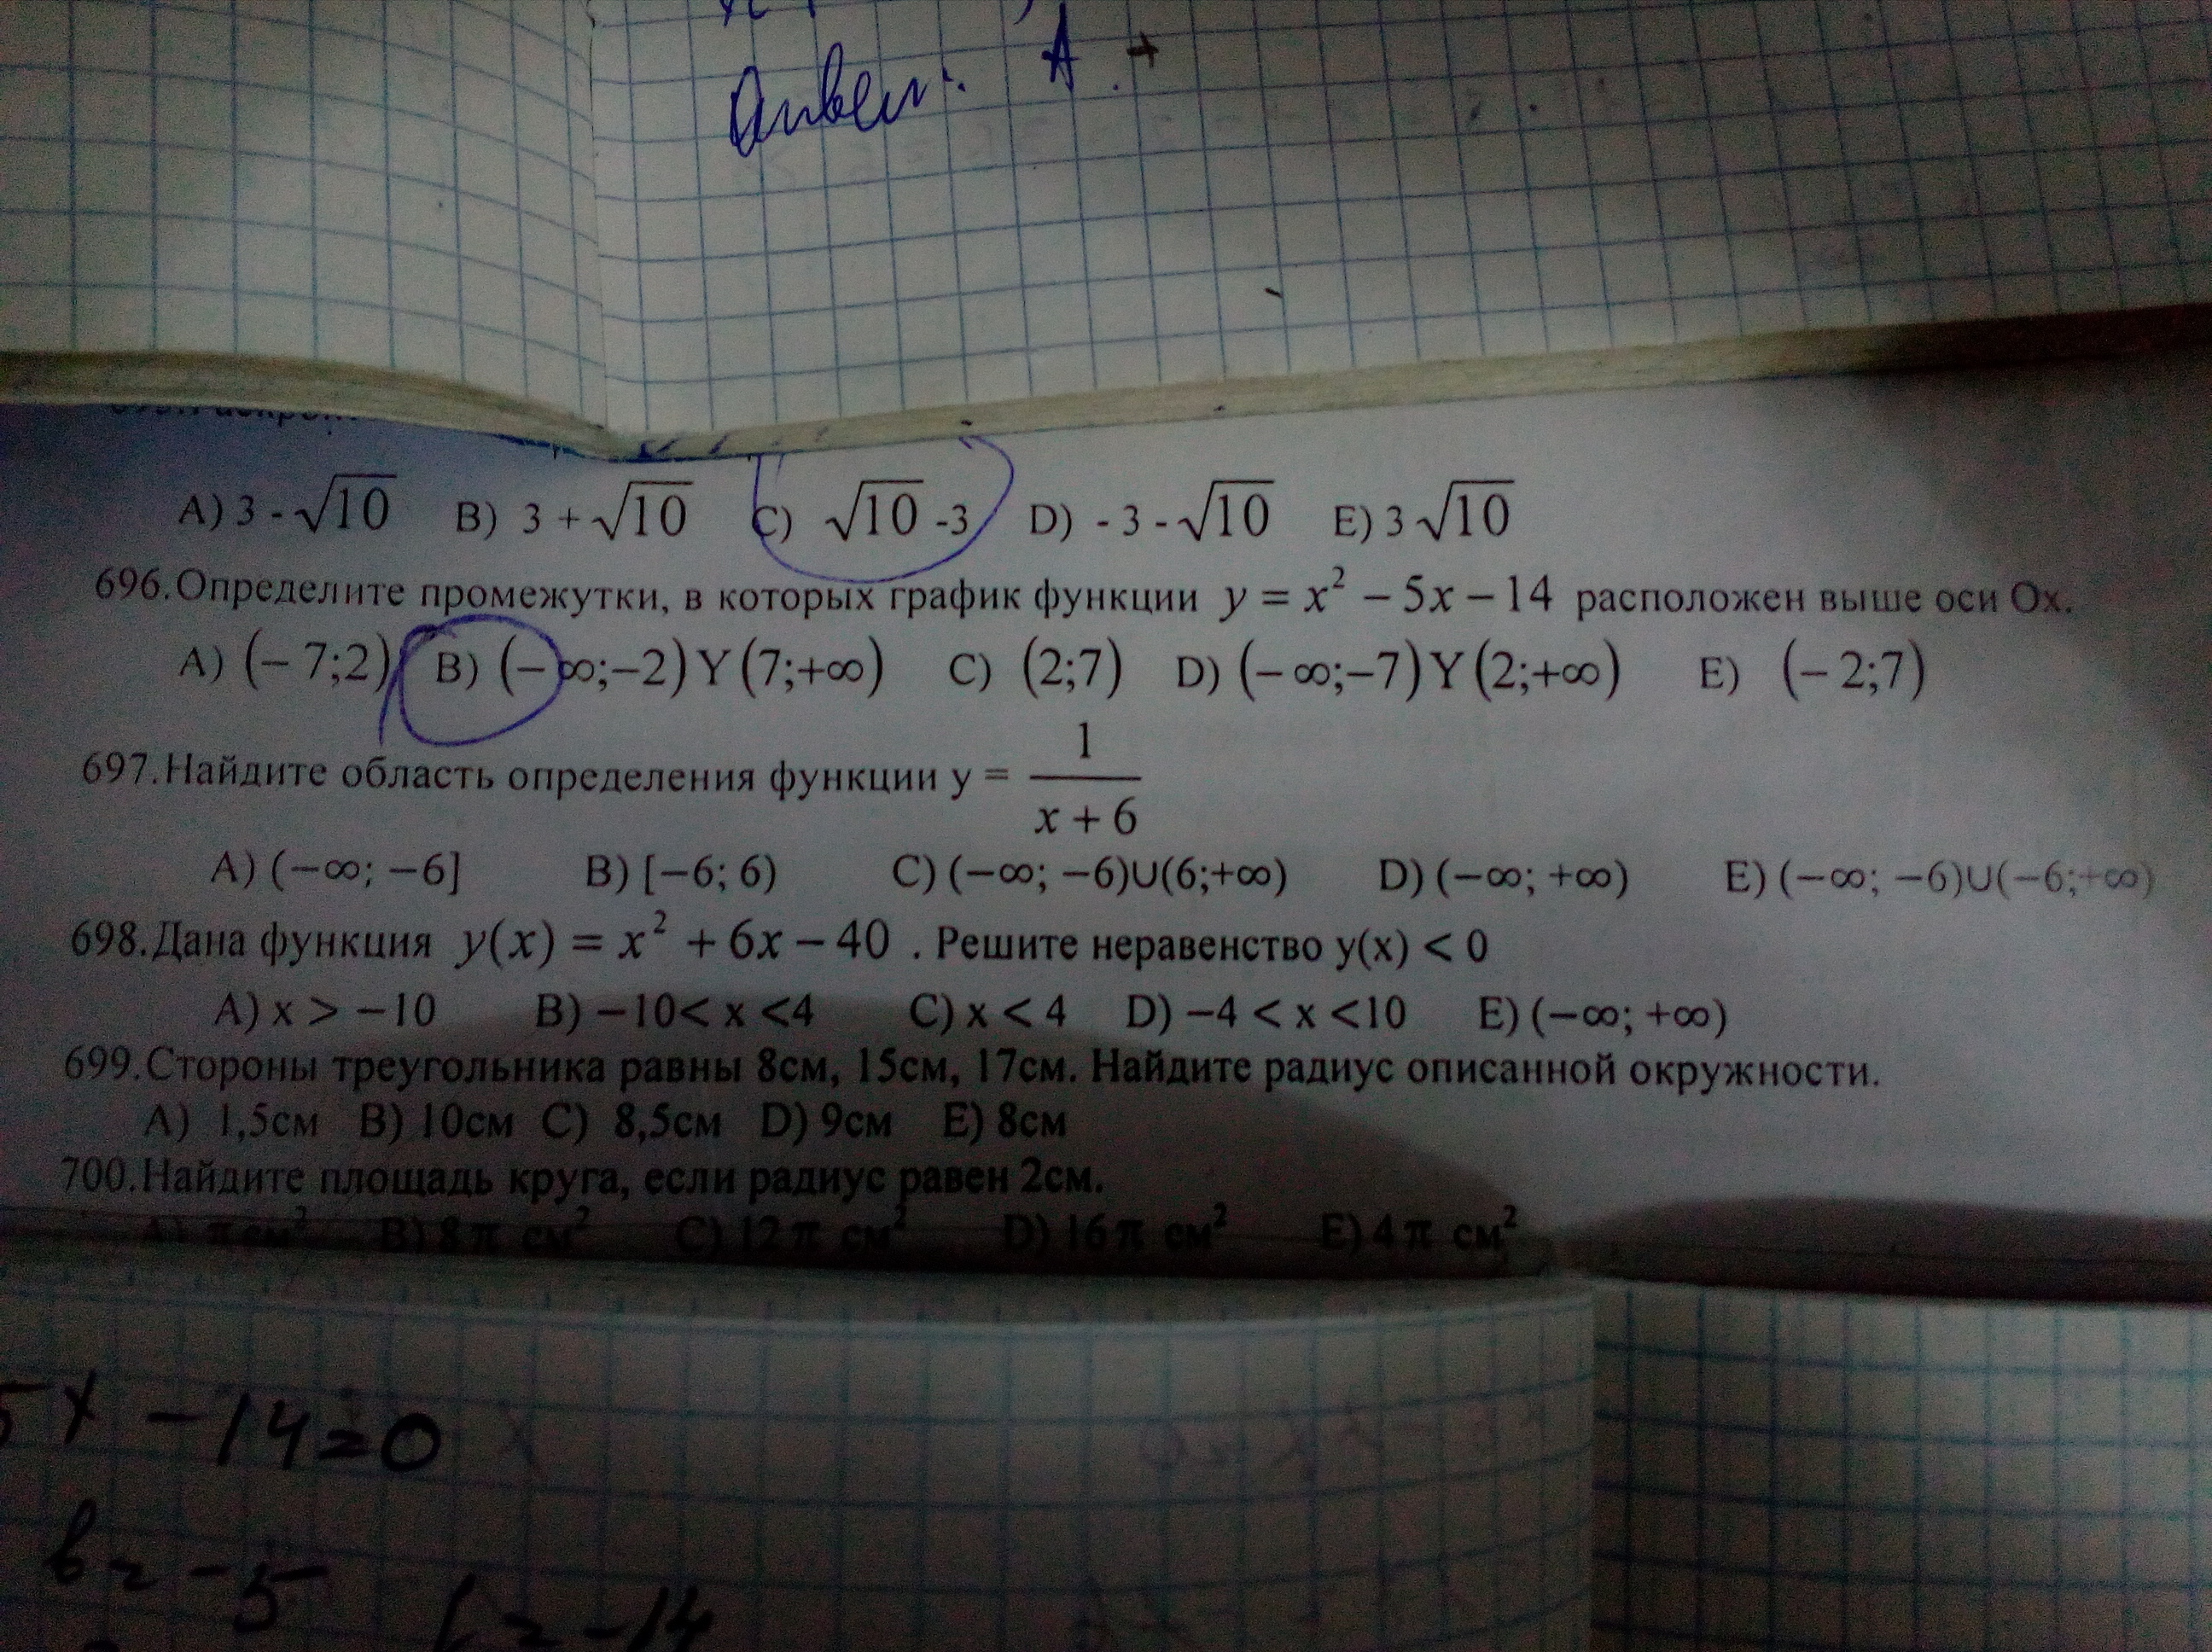 Ответ: А. +
A) 3 - √10 B) 3 + √10 C) √10 -3 D) - 3 - √10 E) 3 √10
696.Определите промежутки, в которых график функции y = x² − 5x − 14 расположен выше оси Ох.
A) (− 7;2) B) (− ∞;−2) Y (7;+∞) C) (2;7) D) (− ∞;−7) Y (2;+∞) E) (− 2;7)
697.Найдите область определения функции y = 1/(x + 6)
A) (−∞; −6] B) [−6; 6) C) (−∞; −6)∪(6;+∞) D) (−∞; +∞) E) (−∞; −6)∪(−6;+∞)
698.Дана функция y(x) = x² + 6x − 40 . Решите неравенство y(x) < 0
A) x > −10 B) −10< x <4 C) x < 4 D) −4 < x <10 E) (−∞; +∞)
699.Стороны треугольника равны 8см, 15см, 17см. Найдите радиус описанной окружности.
A) 1,5см B) 10см C) 8,5см D) 9см E) 8см
700.Найдите площадь круга, если радиус равен 2см.
A) π см² B) 8π см² C) 12π см² D) 16π см² E) 4π см²
5x − 14=0
b= −5 c= −14